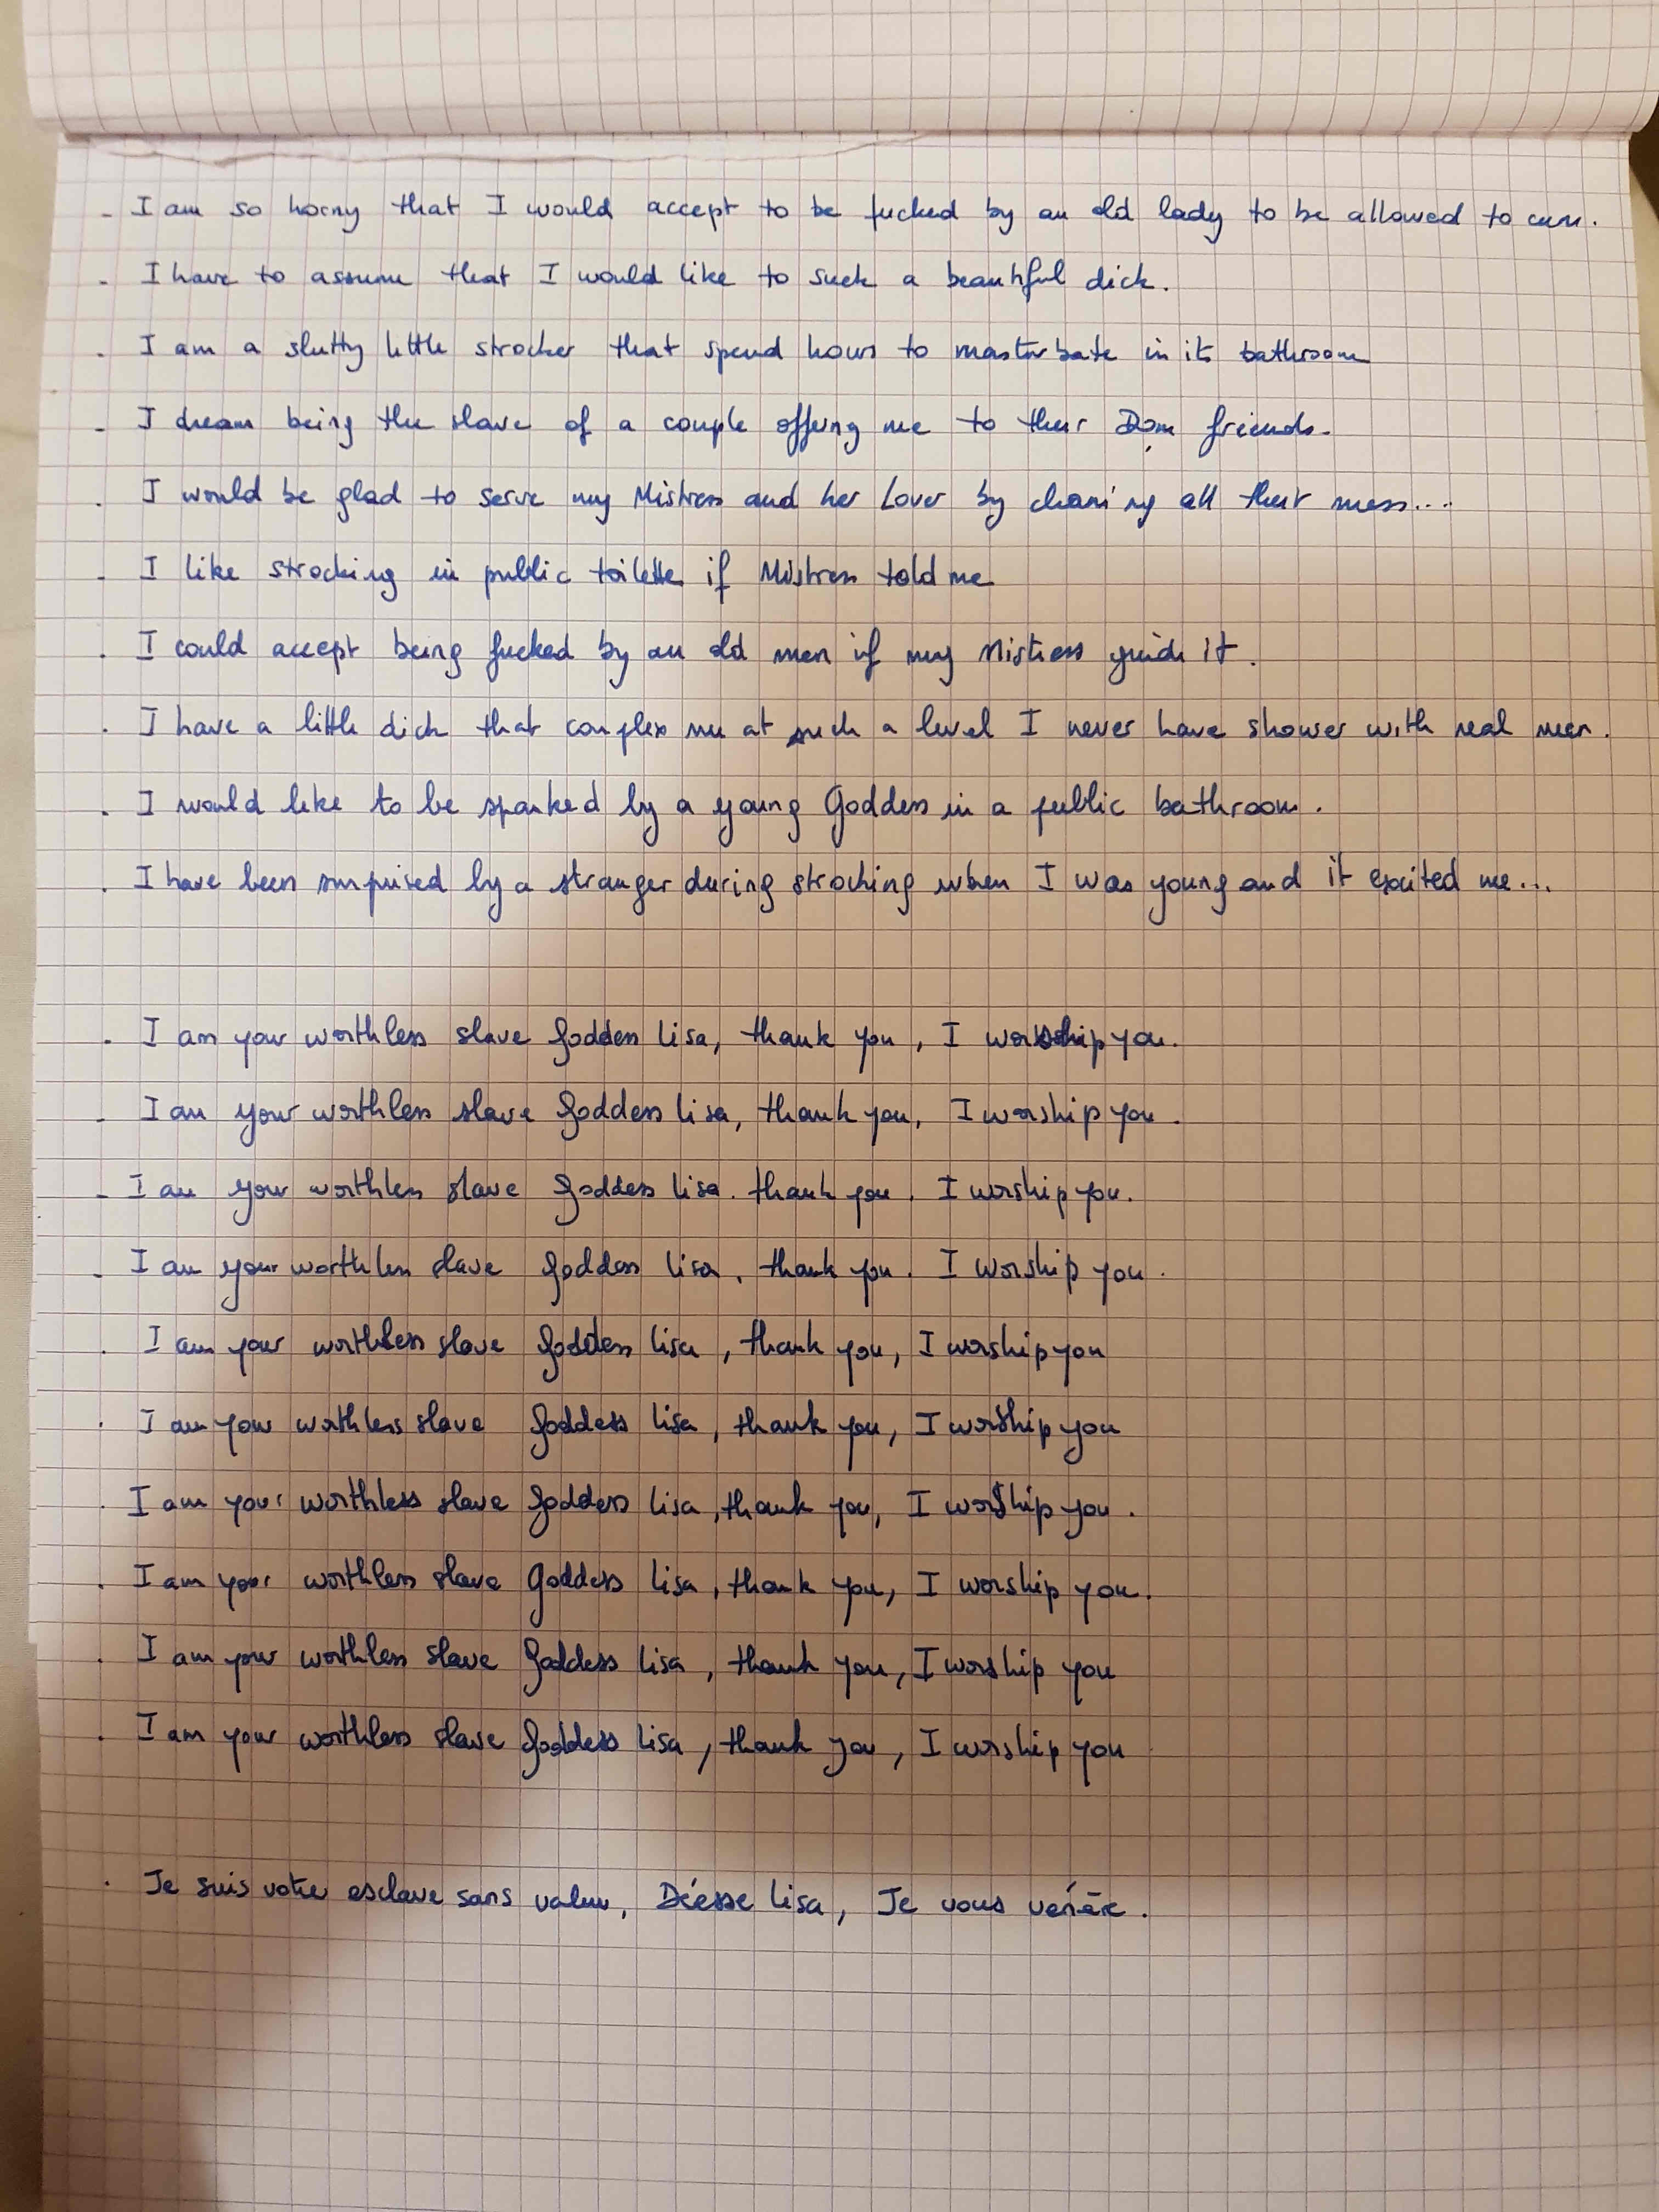 - I am so horny that I would accept to be fucked by an old lady to be allowed to cum.
- I have to assume that I would like to suck a beautiful dick.
- I am a slutty little strocker that spend hours to masturbate in its bathroom
- I dream being the slave of a couple offering me to their Dom friends.
- I would be glad to serve my Mistress and her Lover by cleaning all their mess...
- I like strocking in public toilette if Mistress told me
- I could accept being fucked by an old men if my Mistress guide it.
- I have a little dick that complex me at such a level I never have shower with real men.
- I would like to be spanked by a young Goddess in a public bathroom.
- I have been surprised by a stranger during strocking when I was young and it excited me...
- I am your worthless slave Goddess Lisa, thank you, I worship you.
- I am your worthless slave Goddess Lisa, thank you, I worship you.
- I am your worthless slave Goddess Lisa. thank you. I worship you.
- I am your worthless slave Goddess Lisa. thank you. I worship you.
- I am your worthless slave Goddess Lisa, thank you, I worship you
- I am your worthless slave Goddess Lisa, thank you, I worship you
- I am your worthless slave Goddess Lisa, thank you, I worship you.
- I am your worthless slave Goddess Lisa, thank you, I worship you.
- I am your worthless slave Goddess Lisa, thank you, I worship you
- I am your worthless slave Goddess Lisa, thank you, I worship you
- Je suis votre esclave sans valeur, Déesse Lisa, Je vous vénère.